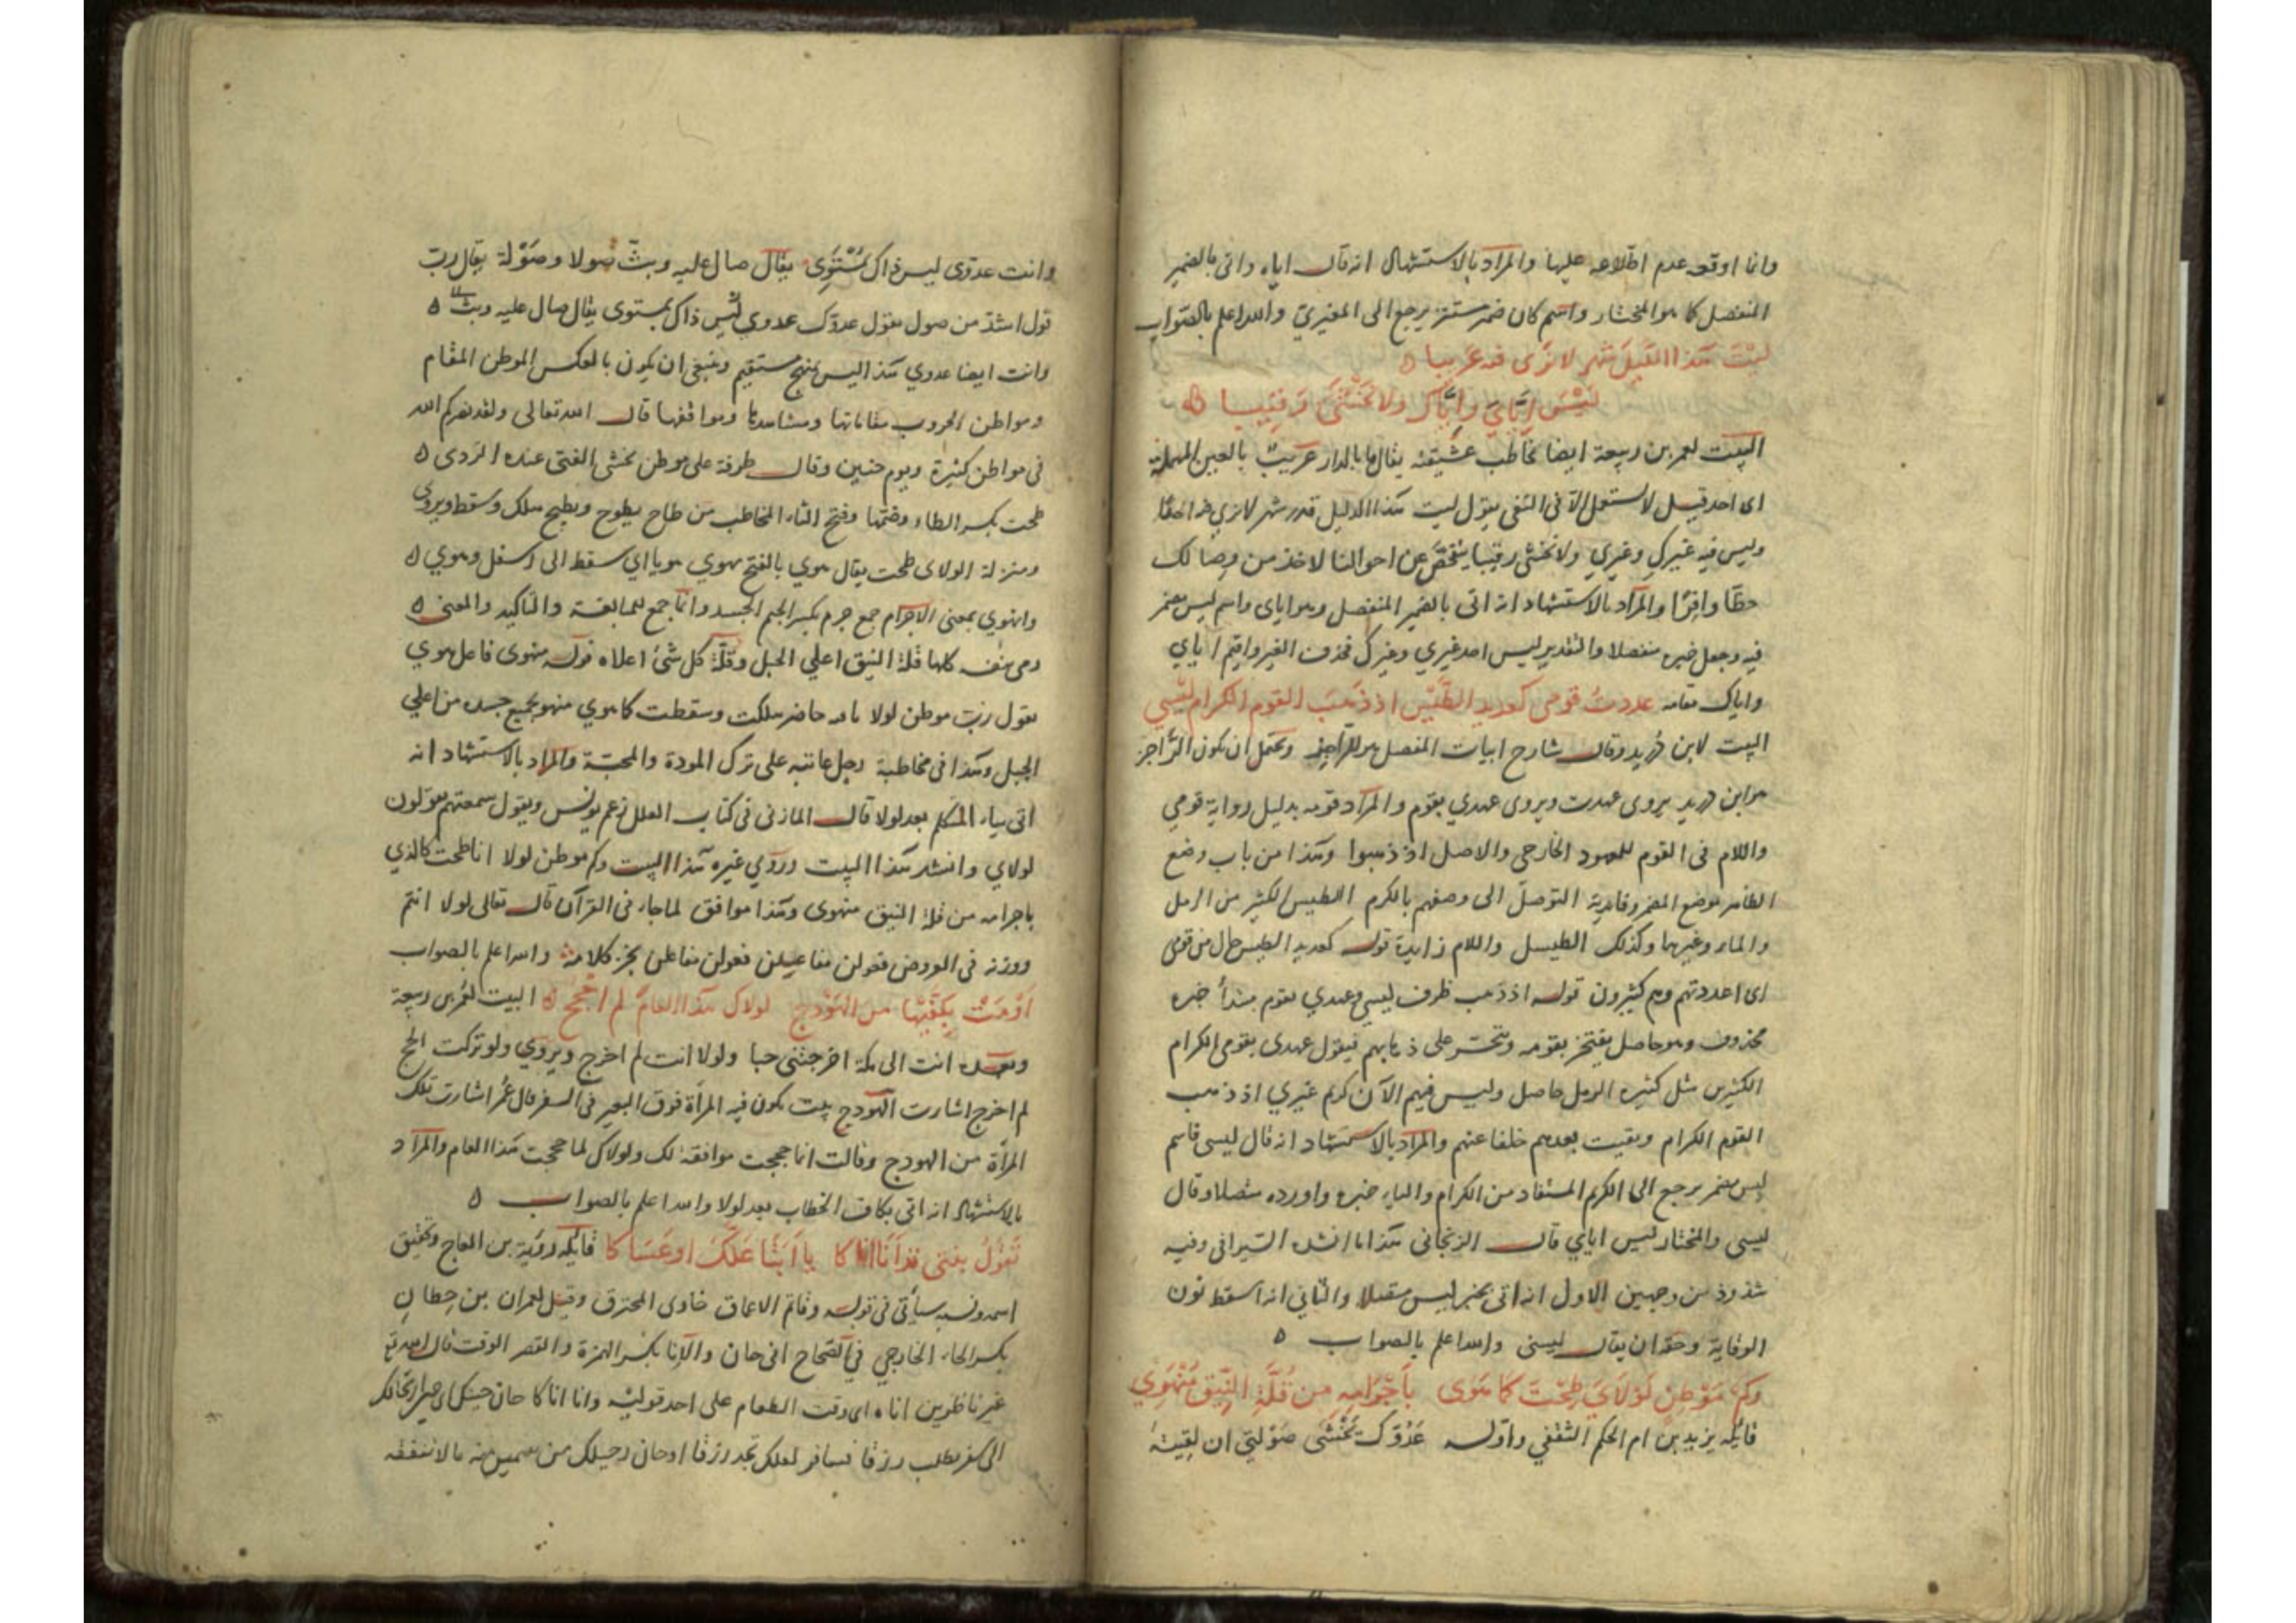 وانما اوقع عدم اطلاعه عليها والمراد بالاستشهاد انه قال اياه واتى بالضمير
المنفصل كما هو المختار واسم كان ضمير مستتر يرجع الى المغيري والله اعلم بالصواب
ليْتَ هذا الليلَ شهر لا نَرَى فيه عَريبا ه
ليْسَ ايَّايَ وايَّاكِ ولا نَخْشَى رَقِيبا ه
البيت لعمر بن ربيعة ايضا يخاطب عشيقته يقال ما بالدار عَريبٌ بالعين المهملة
اى احد قيل لا يستعمل الا فى النفى يقول ليت هذا الليل قدر شهر لا نري فيه احدًا
وليس فيه غيركِ وغيري ولا نخشى رقيبا يتفحّص عن احوالنا لاخذ من وصالك
حظّا وافرًا والمراد بالاستشهاد انه اتى بالضمير المنفصل وهو اياى واسم ليس مضمر
فيه وجعل خبره منفصلا والتقدير ليس احد غيري وغيرك فحذف الغير واقيم اياي
واياك مقامه عددتُ قومى كعديد الطَّيْسِ اذ ذهَبَ القوم الكرام ليْسي
البيت لابن دُريد وقال شارح ابيات المفصل هو للراجز ويحتمل ان يكون الرَّاجز
هو ابن دريد يروى عهدت ويروى عهدي بقوم والمراد قومه بدليل رواية قومي
واللام فى القوم للمعهود الخارجى والاصل اذ ذهبوا وهذا من باب وضع
الظاهر موضع المضمر وفايدته التوصلّ الى وصفهم بالكرم الطيس الكثير من الرمل
والماء وغيرهما وكذلك الطيسل واللام زايدة قوله كعديد الطيس حال من قومى
اى اعددتهم وهم كثيرون قوله اذ ذهب ظرف ليسي وعهدي بقوم مبتدأ خبره
محذوف وهو حاصل يفتخر بقومه ويتحسّر على ذهابهم فيقول عهدى بقومى الكرام
الكثيرين مثل كثيره الرمل حاصل وليس فيهم الآن كريم غيري اذ ذهب
القوم الكرام وبقيت بعدهم خلفا عنهم والمراد بالاستشهاد انه قال ليسى فاسم
ليس مضمر يرجع الى الكريم المستفاد من الكرام والياء خبره واورده متصلا وقال
ليسى والمختار ليس اياي قال الزنجانى هكذا انشده السّيرافى وفيه
شذوذ من وجهين الاول انه اتى بخبر ليس متصلا والثانى انه اسقط نون
الوقاية وحقه ان يقال ليسنى والله اعلم بالصواب ه
وكم مَوْطِنٍ لَوْلَايَ طِحْتَ كما هَوى بأَجْرامِهِ من قُلَّةِ النِّيق مُنْهَوِي
قائله يزيد بن ام الحكم الثقفي واوله عَدُوّكَ يَخْشى صَوْلتي ان لقِيتَهُ
وانت عدوّى ليس ذاك بمُسْتَوِى يقال صال عليه وبث صولا وصَوْلة يقال ربّ
قول اشدّ من صول يقول عدوّك عدوي ليْس ذاك بمستوى يقال صال عليه وبث ه
وانت ايضا عدوي هذا ليس بمنهج مستقيم وينبغى ان يكون بالعكس الموطن المقام
ومواطن الحروب مقاماتها ومشاهدها ومواقفها قال الله تعالى ولقد نصركم الله
فى مواطن كثيرة ويوم حنين وقال طرفة على موطن يخشى الفتى عنده الرَدى ه
طحت بكسر الطاء وضمّها وفتح التاء المخاطب من طاح يطوح ويطيح هلك وسقط ويروى
ومنزلة لولاى طحت يقال هوي بالفتح يهوي هويا اي سقط الى اسفل وهوي ه
وانهوي بمعنى الاجرام جمع جرم بكسر الجيم الجسد وانّما جمع للمبالغة والتاكيد والمعنى ه
رمى بنفسه كلها قلة النيق اعلى الجبل وقلّة كل شئ اعلاه قوله منهوى فاعل هوي
يقول ربّ موطن لولا انا فيه حاضر هلكت وسقطت كما هوي منهو بجميع جسده من اعلي
الجبل وهذا فى مخاطبة رجل عاتبه على ترك المودة والمحبّة والمراد بالاستشهاد انه
اتى بياء المتكلم بعد لولا قال المازنى فى كتاب العلل زعم يونس ويقول سمعتهم يقولون
لولاي وانشد هذا البيت وروي غيره هذا البيت وكم موطن لولا انا طحت كالذي
باجرامه من قلة النيق منهوى وهذا موافق لما جاء فى القرآن قال تعالى لولا انتم
ووزنه فى العروض فعولن مفاعيلن فعولن مفاعلن والله اعلم بالصواب
أوْمَتْ بكفّيْها من الهَوْدَجِ لولاك هذا العامَ لم احْجُجِ ه البيت لعُمر بن ربيعة
وبعده انت الى مكة اخرجتنى حبا ولولا انت لم اخرج ويروي ولو تركت الحج
لم اخرج اشارت الهودج بيت يكون فيه المرأة فوق البعير فى السفر قال عُمر اشارت تلك
المرأة من الهودج وقالت انما حججت موافقة لك ولولاك لما حججت هذا العام والمراد
بالاستشهاد انه اتى بكاف الخطاب بعد لولا والله اعلم بالصواب ه
تَقولُ بِنتى قد أنَا اناكا يا أبَتا عَلَّكَ اوعَسَاكا قائله رؤبة بن العجاج وتحقيق
اسمه ونسبه سيأتى فى قوله وقاتم الاعماق خاوى المخترق وقيل لعمران بن حِطانِ
بكسر الحاء الخارجي فى الصّحاح انى حان والآنا بكسر الهمزة والقصر الوقت قال الله تع
غير ناظرين اناه اى وقت الطعام على احد قوليْه وانا اناكا حان حينك اى حين ارتحالك
الى سفر تطلب رزقا فسافر لعلك تجد رزقا او حان رحيلك من